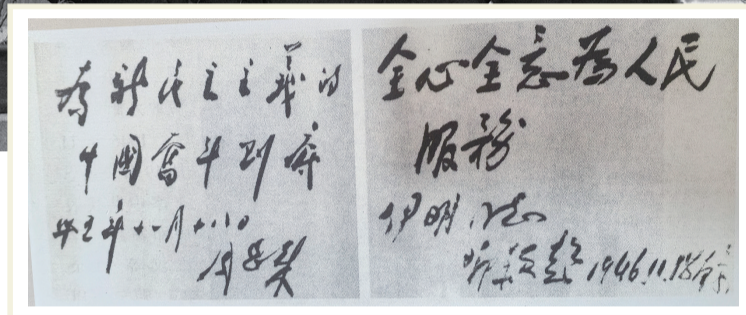 為新民主主義的
中國奮斗到底
卅五年十一月十八日
周恩來
全心全意為人民
服務
伊明同志
鄧頴超 1946.11.18